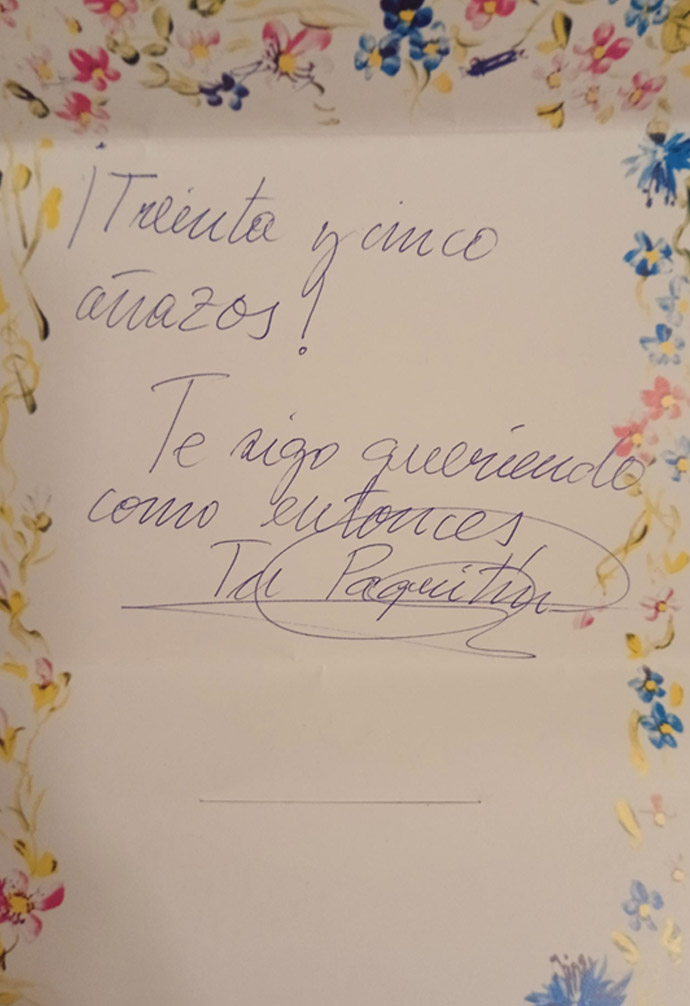 ¡Treinta y cinco
añazos!
Te sigo queriendo
como entonces
Tu Paquita